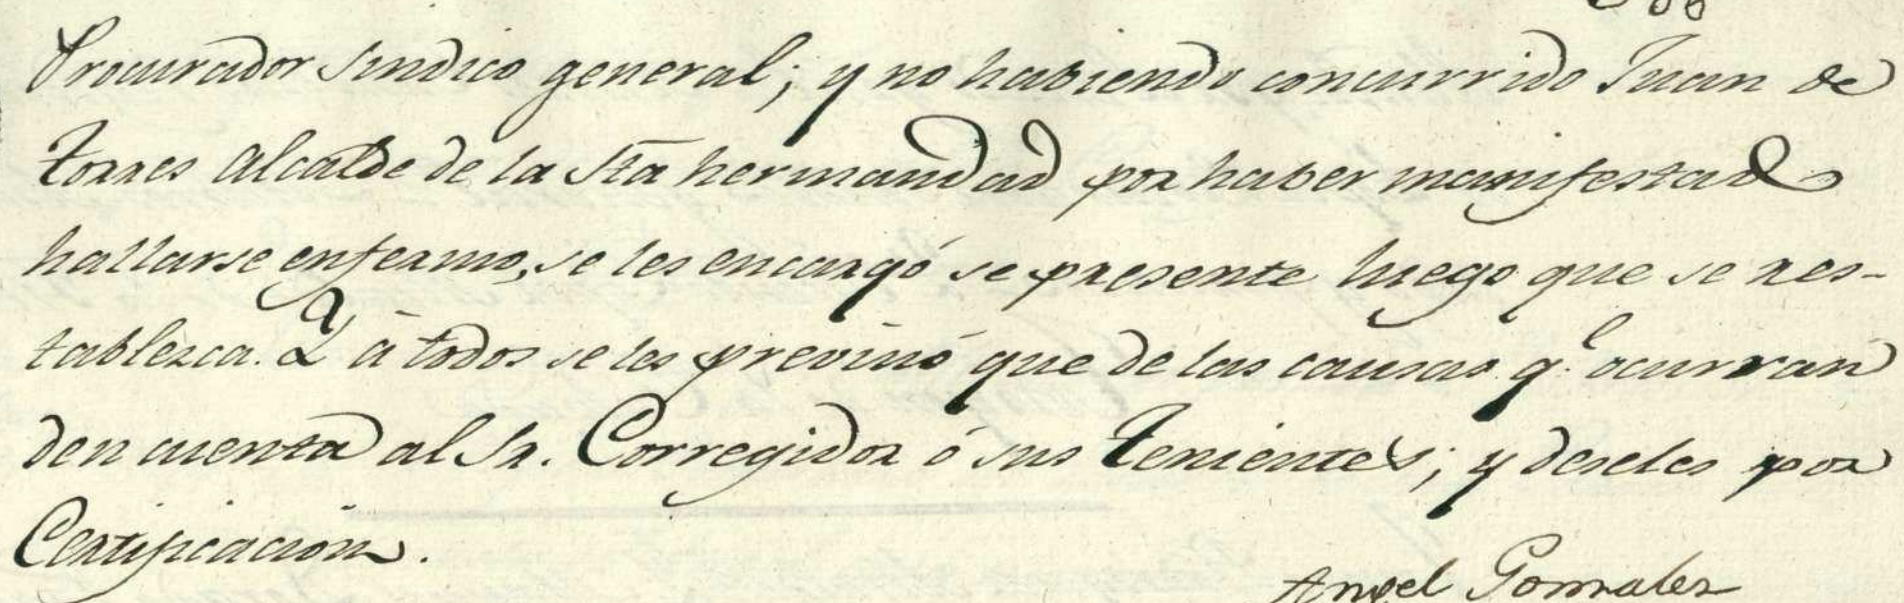 Procurador sindico general; y no habiendo concurrido Juan de
torres Alcalde de la Sta hermandad por haber manifestado
hallarse enfermo, se les encargó se presente luego que se res-
tablezca. Y á todos se les previno que de las causas q.e ocurran
den cuenta al Sr. Corregidor ó sus tenientes; y deseles por
Certificacion.
Angel Gonzalez